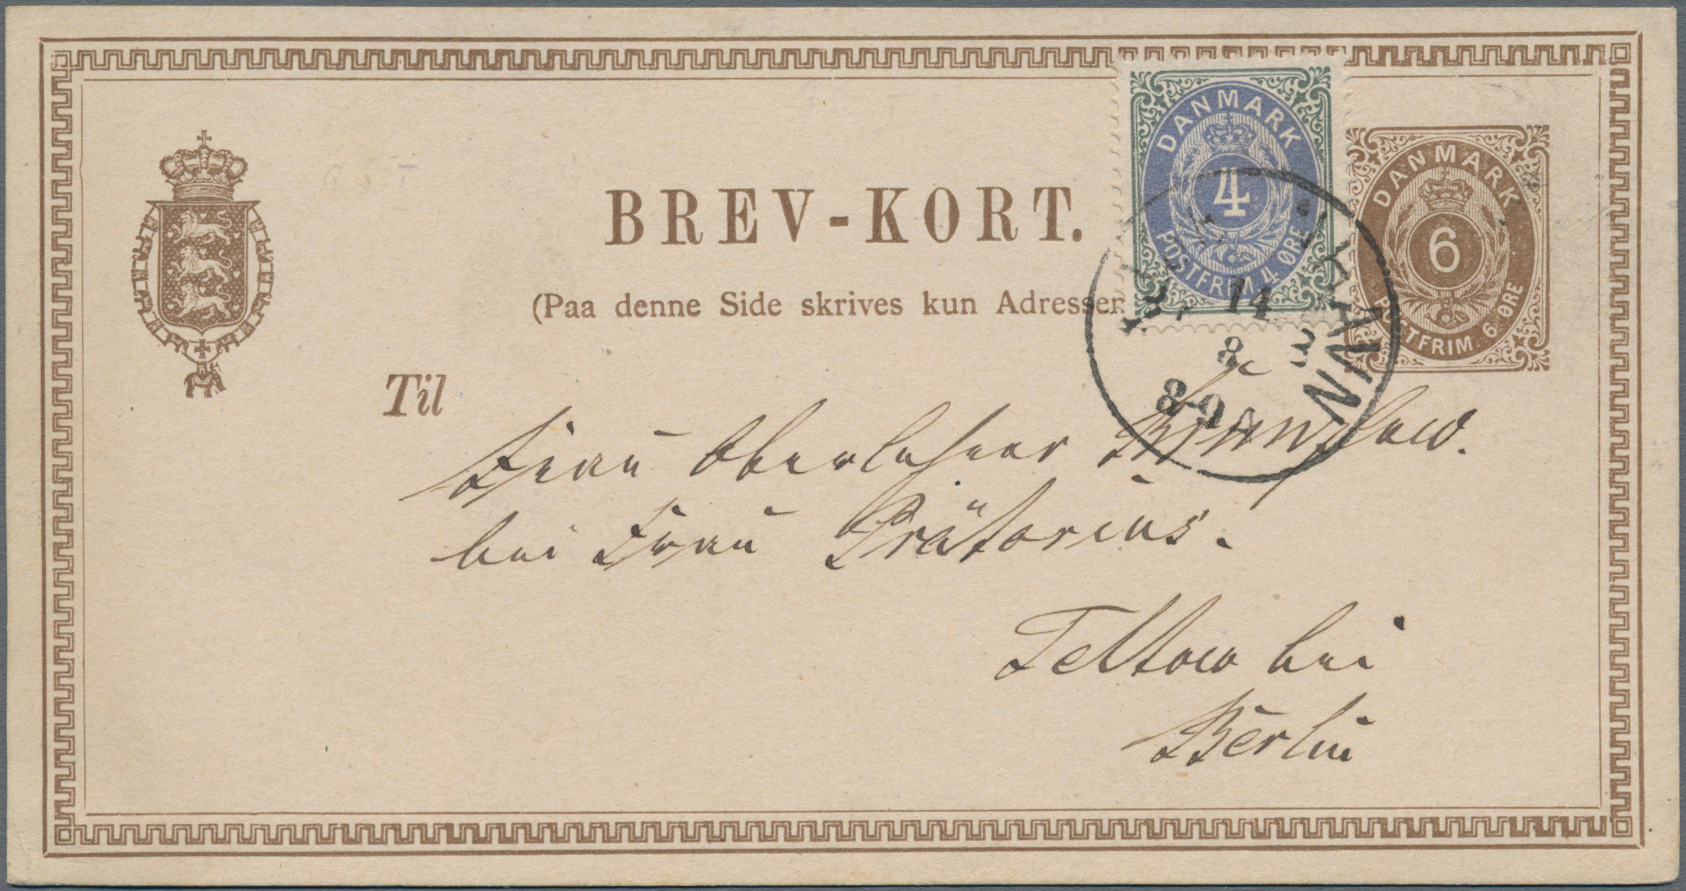 BREV-KORT.
(Paa denne Side skrives kun Adressen
DANMARK
4
POSTFRIM. 4. ØRE
DANMARK
6
POSTFRIM. 6. ØRE
14
8
8-9 A
Til
Frau Oberlehrer
bei Frau Prätorius.
Teltow bei
Berlin